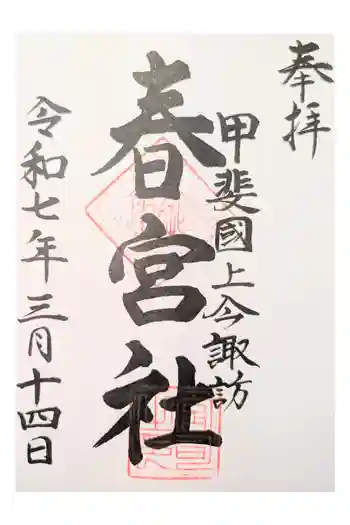 奉拝
甲斐國上今諏訪
春宮社
令和七年三月十四日